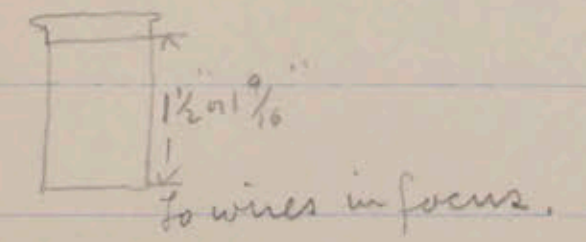 1½" or 1 9/16"
To wires in focus.